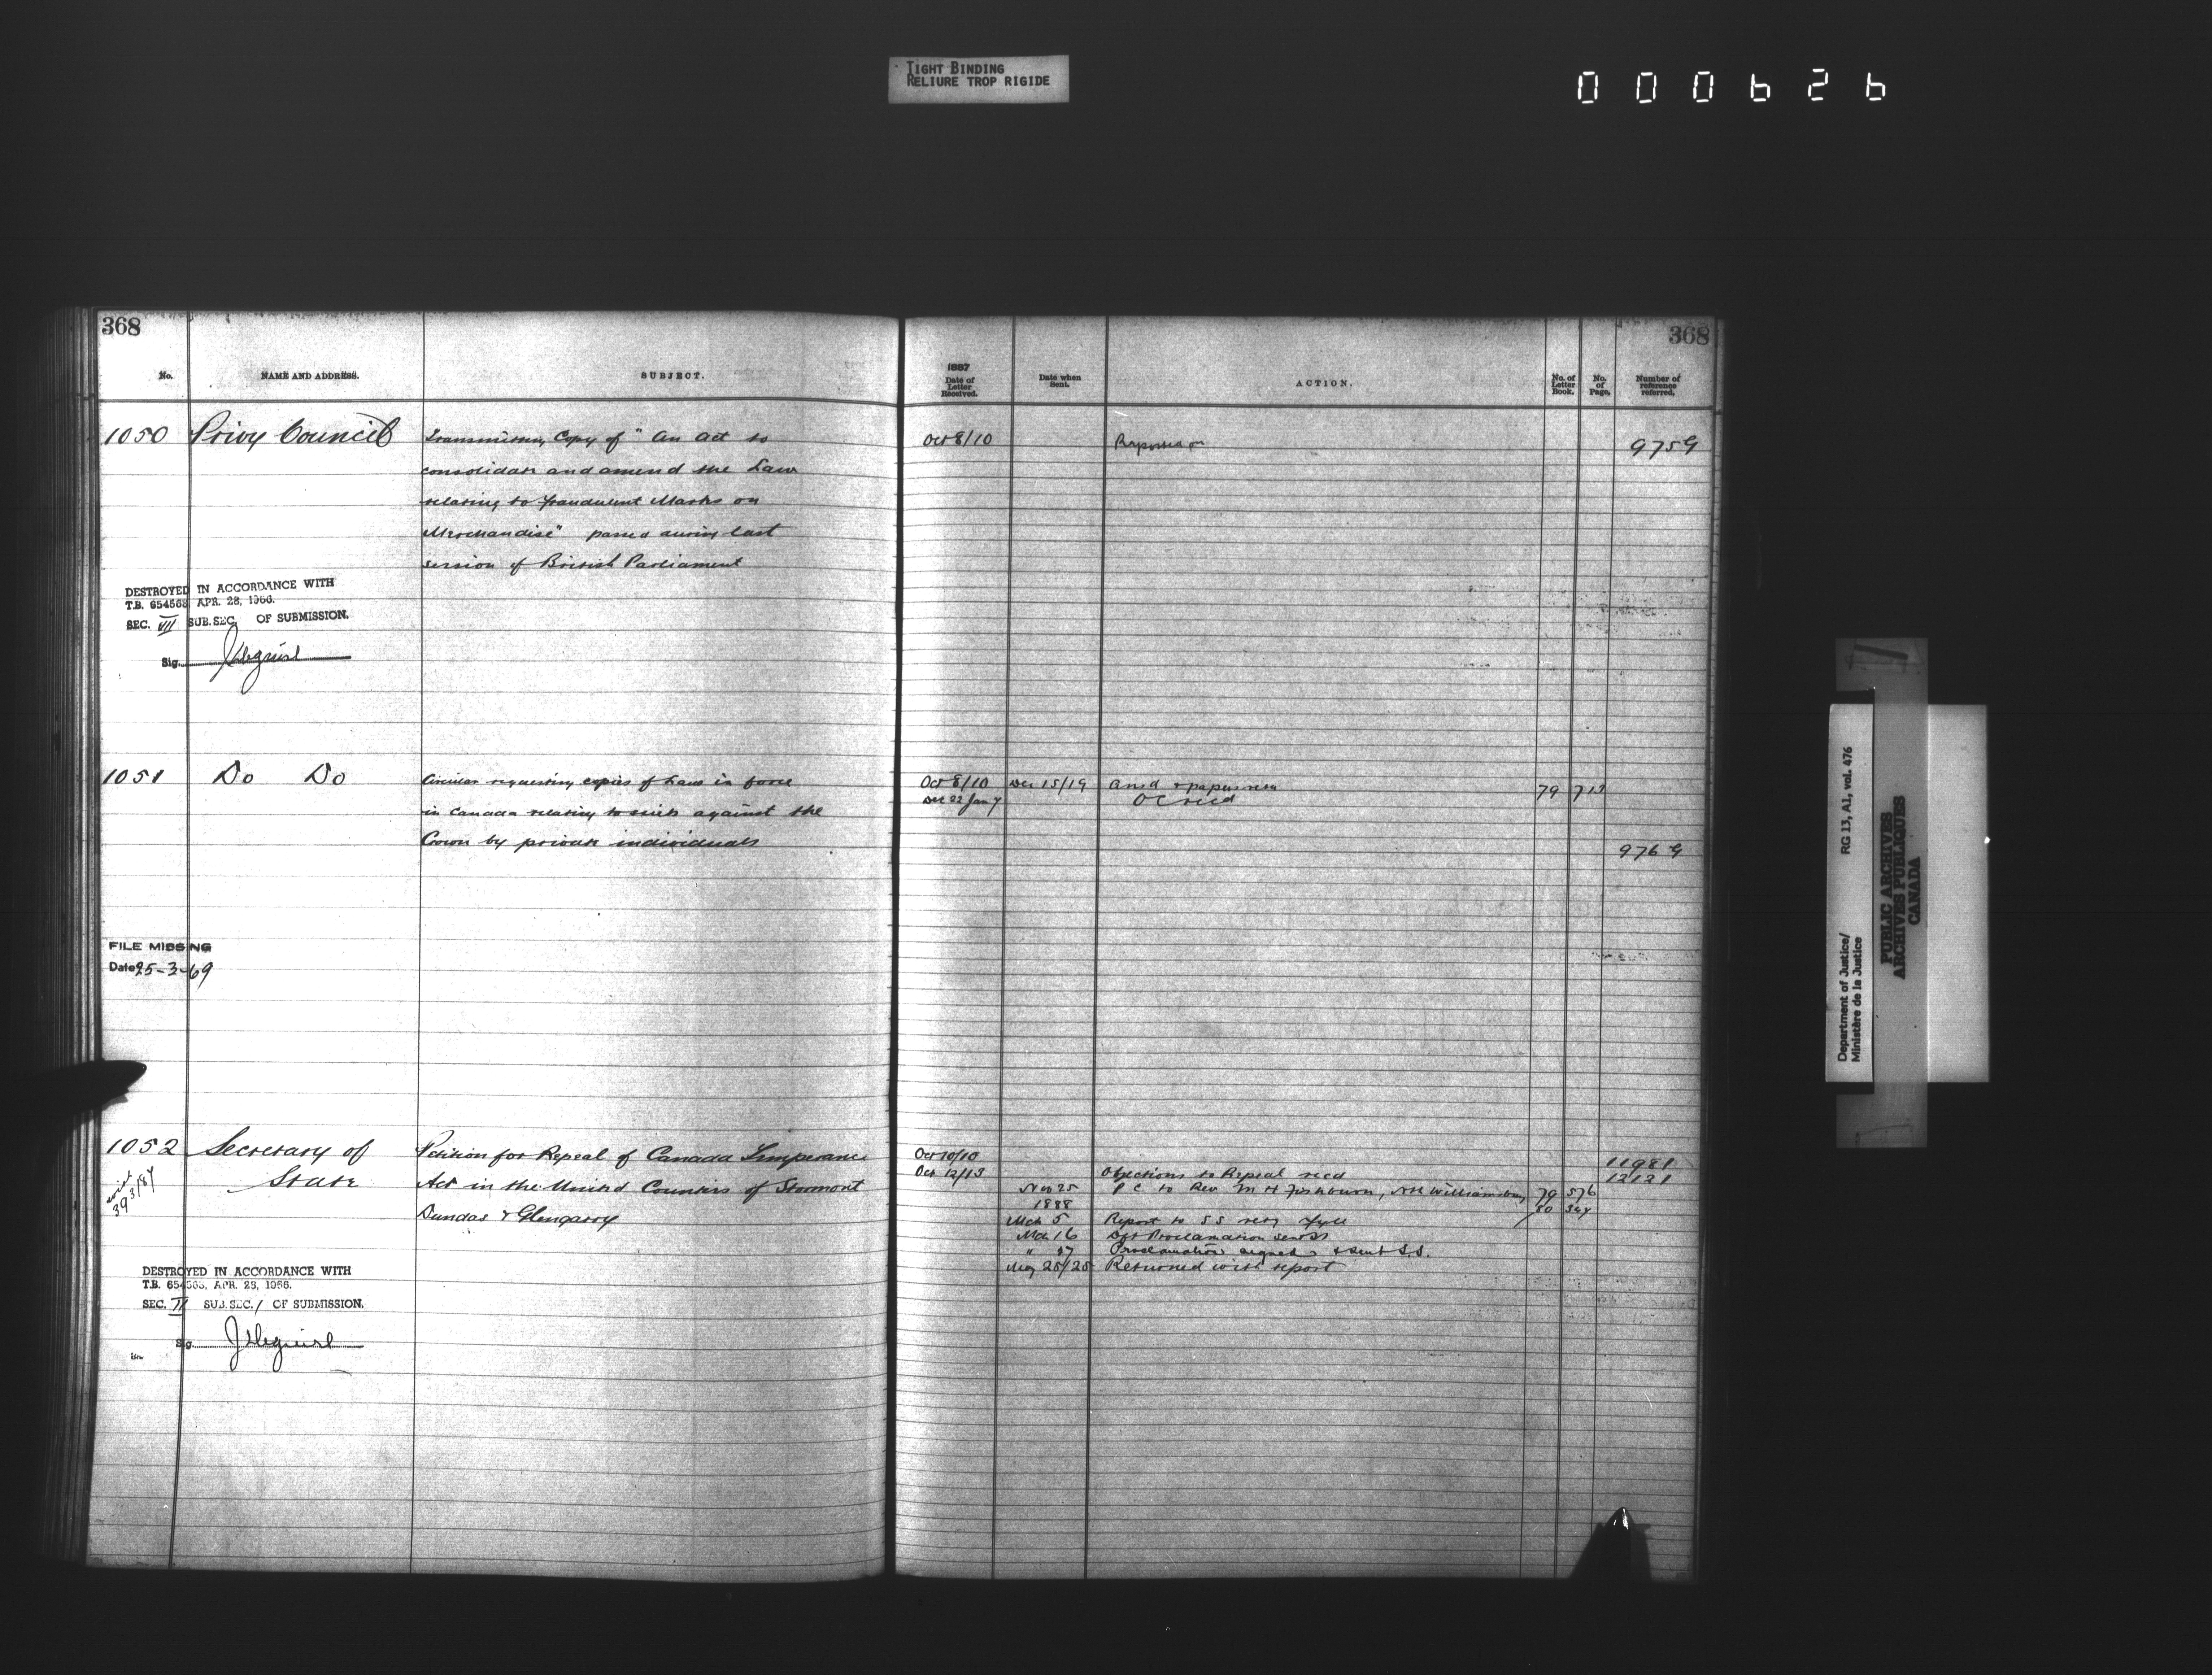 TIGHT BINDING
RELIURE TROP RIGIDE
000626
368
368
No.
NAME AND ADDRESS.
SUBJECT.
1887
Date of Letter Received.
Date when Sent.
ACTION.
No. of Letter Book.
No. of Page.
Number of reference referred.
1050 Privy Council Transmitting Copy of "An Act to Oct 8/10 Reported on 975 G
consolidate and amend the Law
relating to fraudulent Marks on
Merchandise" passed during last
session of British Parliament
DESTROYED IN ACCORDANCE WITH
T.B. 654563 APR. 28, 1966.
SEC. VII SUB.SEC. OF SUBMISSION.
Sig.
1051 Do Do Circular requesting copies of Laws in force Oct 8/10 Dec 15/19 79 713
Dec 22 Jan 7 OC recd
in Canada relating to suits against the
Crown by private individuals 976 G
FILE MISSING
Date 25-3-69
1052 Secretary of Petition for Repeal of Canada Temperance Oct 10/10 11981
State Act in the United Counties of Stormont Oct 12/13 Objections to Repeal recd 12121
with 393/87
Nov 25 P C to Rev M H Fishburn, Williamsburg 79 576
Dundas & Glengarry 1888 80
Mch 5 Report to SS
Mch 16 Dft Proclamation sent SS
" 17 Proclamation signed & sent S.S.
May 25/25 Returned with report
DESTROYED IN ACCORDANCE WITH
T.B. 654563, APR. 28, 1966.
SEC. II SUB.SEC. 1 OF SUBMISSION.
Sig.
Department of Justice/
Ministère de la Justice
RG 13, A1, vol. 476
PUBLIC ARCHIVES
ARCHIVES PUBLIQUES
CANADA